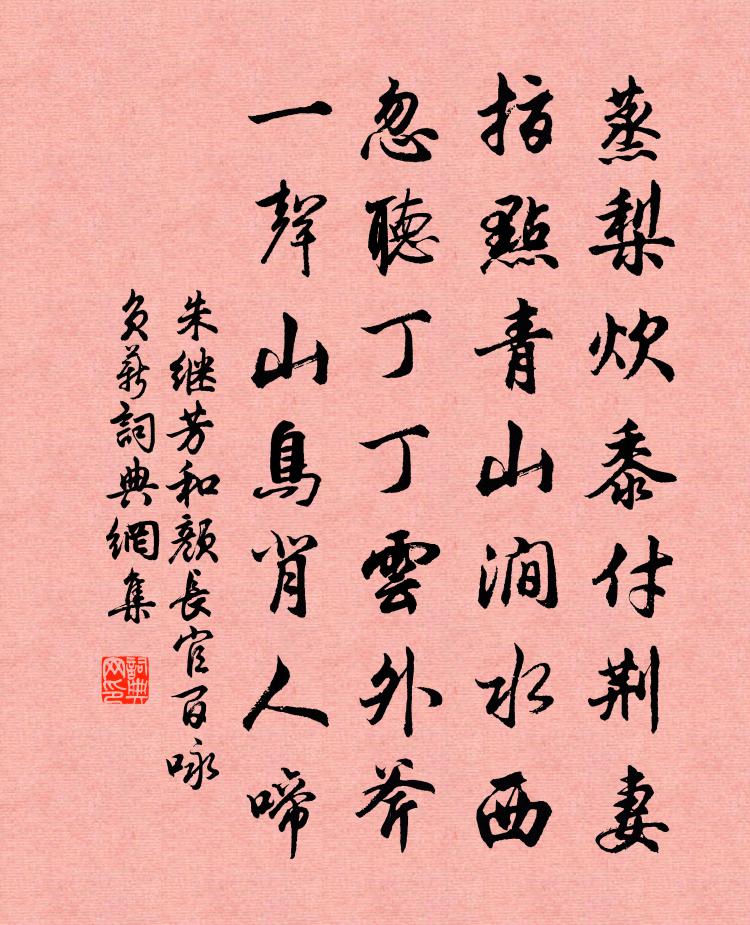 蒸梨炊黍付荆妻
指點青山澗水西
忽聽丁丁雲外斧
一聲山鳥背人啼
朱继芳和顏長官百咏
負薪詞典網集
詞典网印